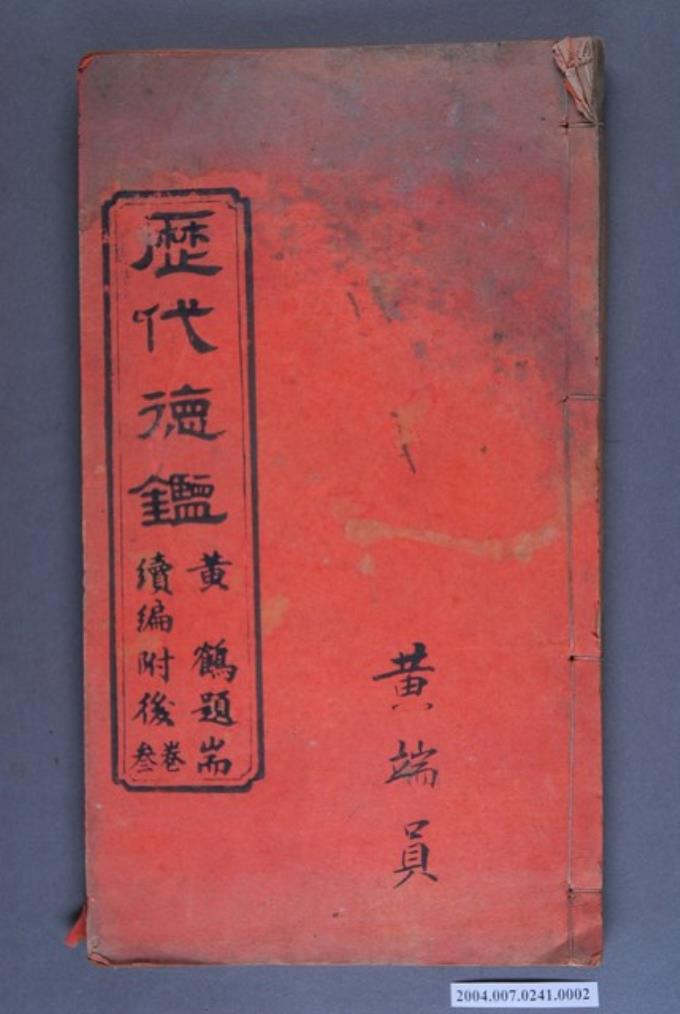 黄端員
歷代德鑑
黄鶴題耑
續編附後
卷叁
2004.007.0241.0002